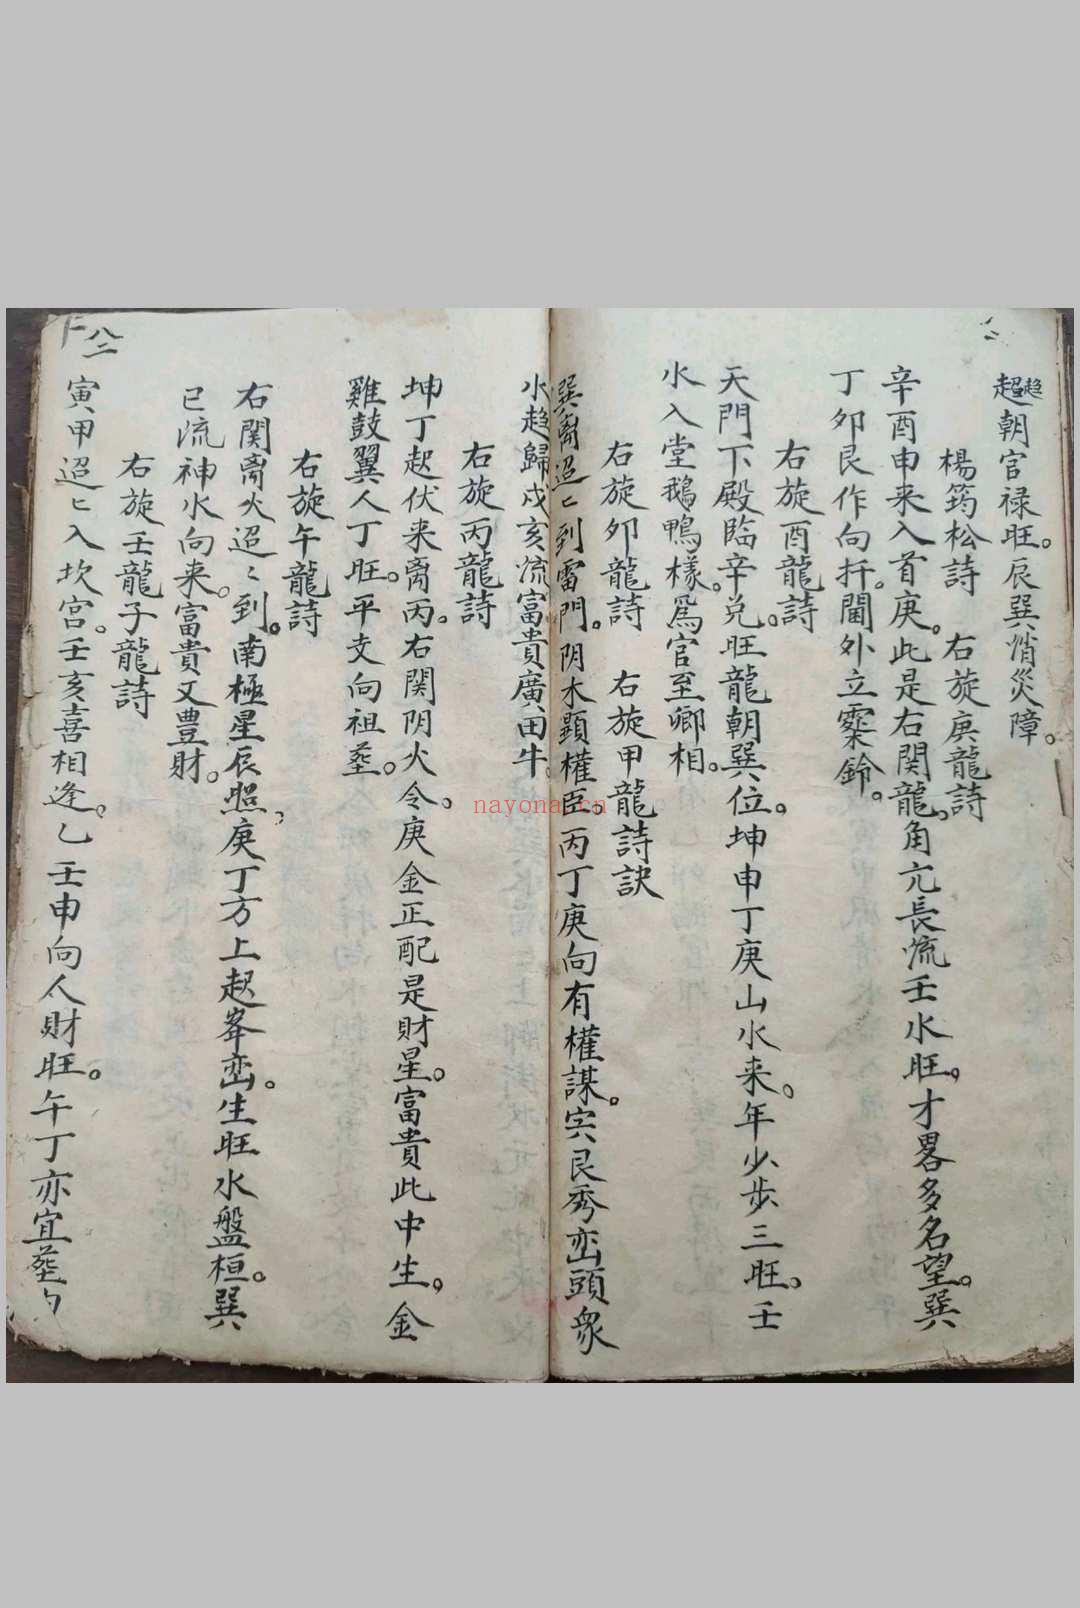 趨朝官禄旺。辰巽消災障。
楊筠松詩 右旋庚龍詩
辛酉申来入首庚。此是右関龍。角亢長流壬水旺。才畧多名望。巽
丁夘艮作向扦。闔外立霥鈴。
右旋酉龍詩
天門下殿臨辛兊。旺龍朝巽位。坤申丁庚山水来。年少步三旺。壬
水入堂鵝鴨樣。爲官至卿相。
右旋夘龍詩 右旋甲龍詩訣
巽离迢匕到雷門。阴木顕權臣。丙丁庚向有權謀。宍艮秀峦頭衆
水趋歸戍亥流富貴廣田牛。
右旋丙龍詩
坤丁起伏来离丙。右関阴火令。庚金正配是財星。富貴此中生。金
雞鼓翼人丁旺。平支向祖塟。
右旋午龍詩
右関离火迢〻到。南極星辰照，庚丁方上起峯峦。生旺水盤桓。巽
已流神水向来。富貴又豊財。
右旋壬龍子龍詩
寅甲迢匕入坎宫。壬亥喜相逢。乙壬申向人財旺。午丁亦宜塟
八二
nayona.cn